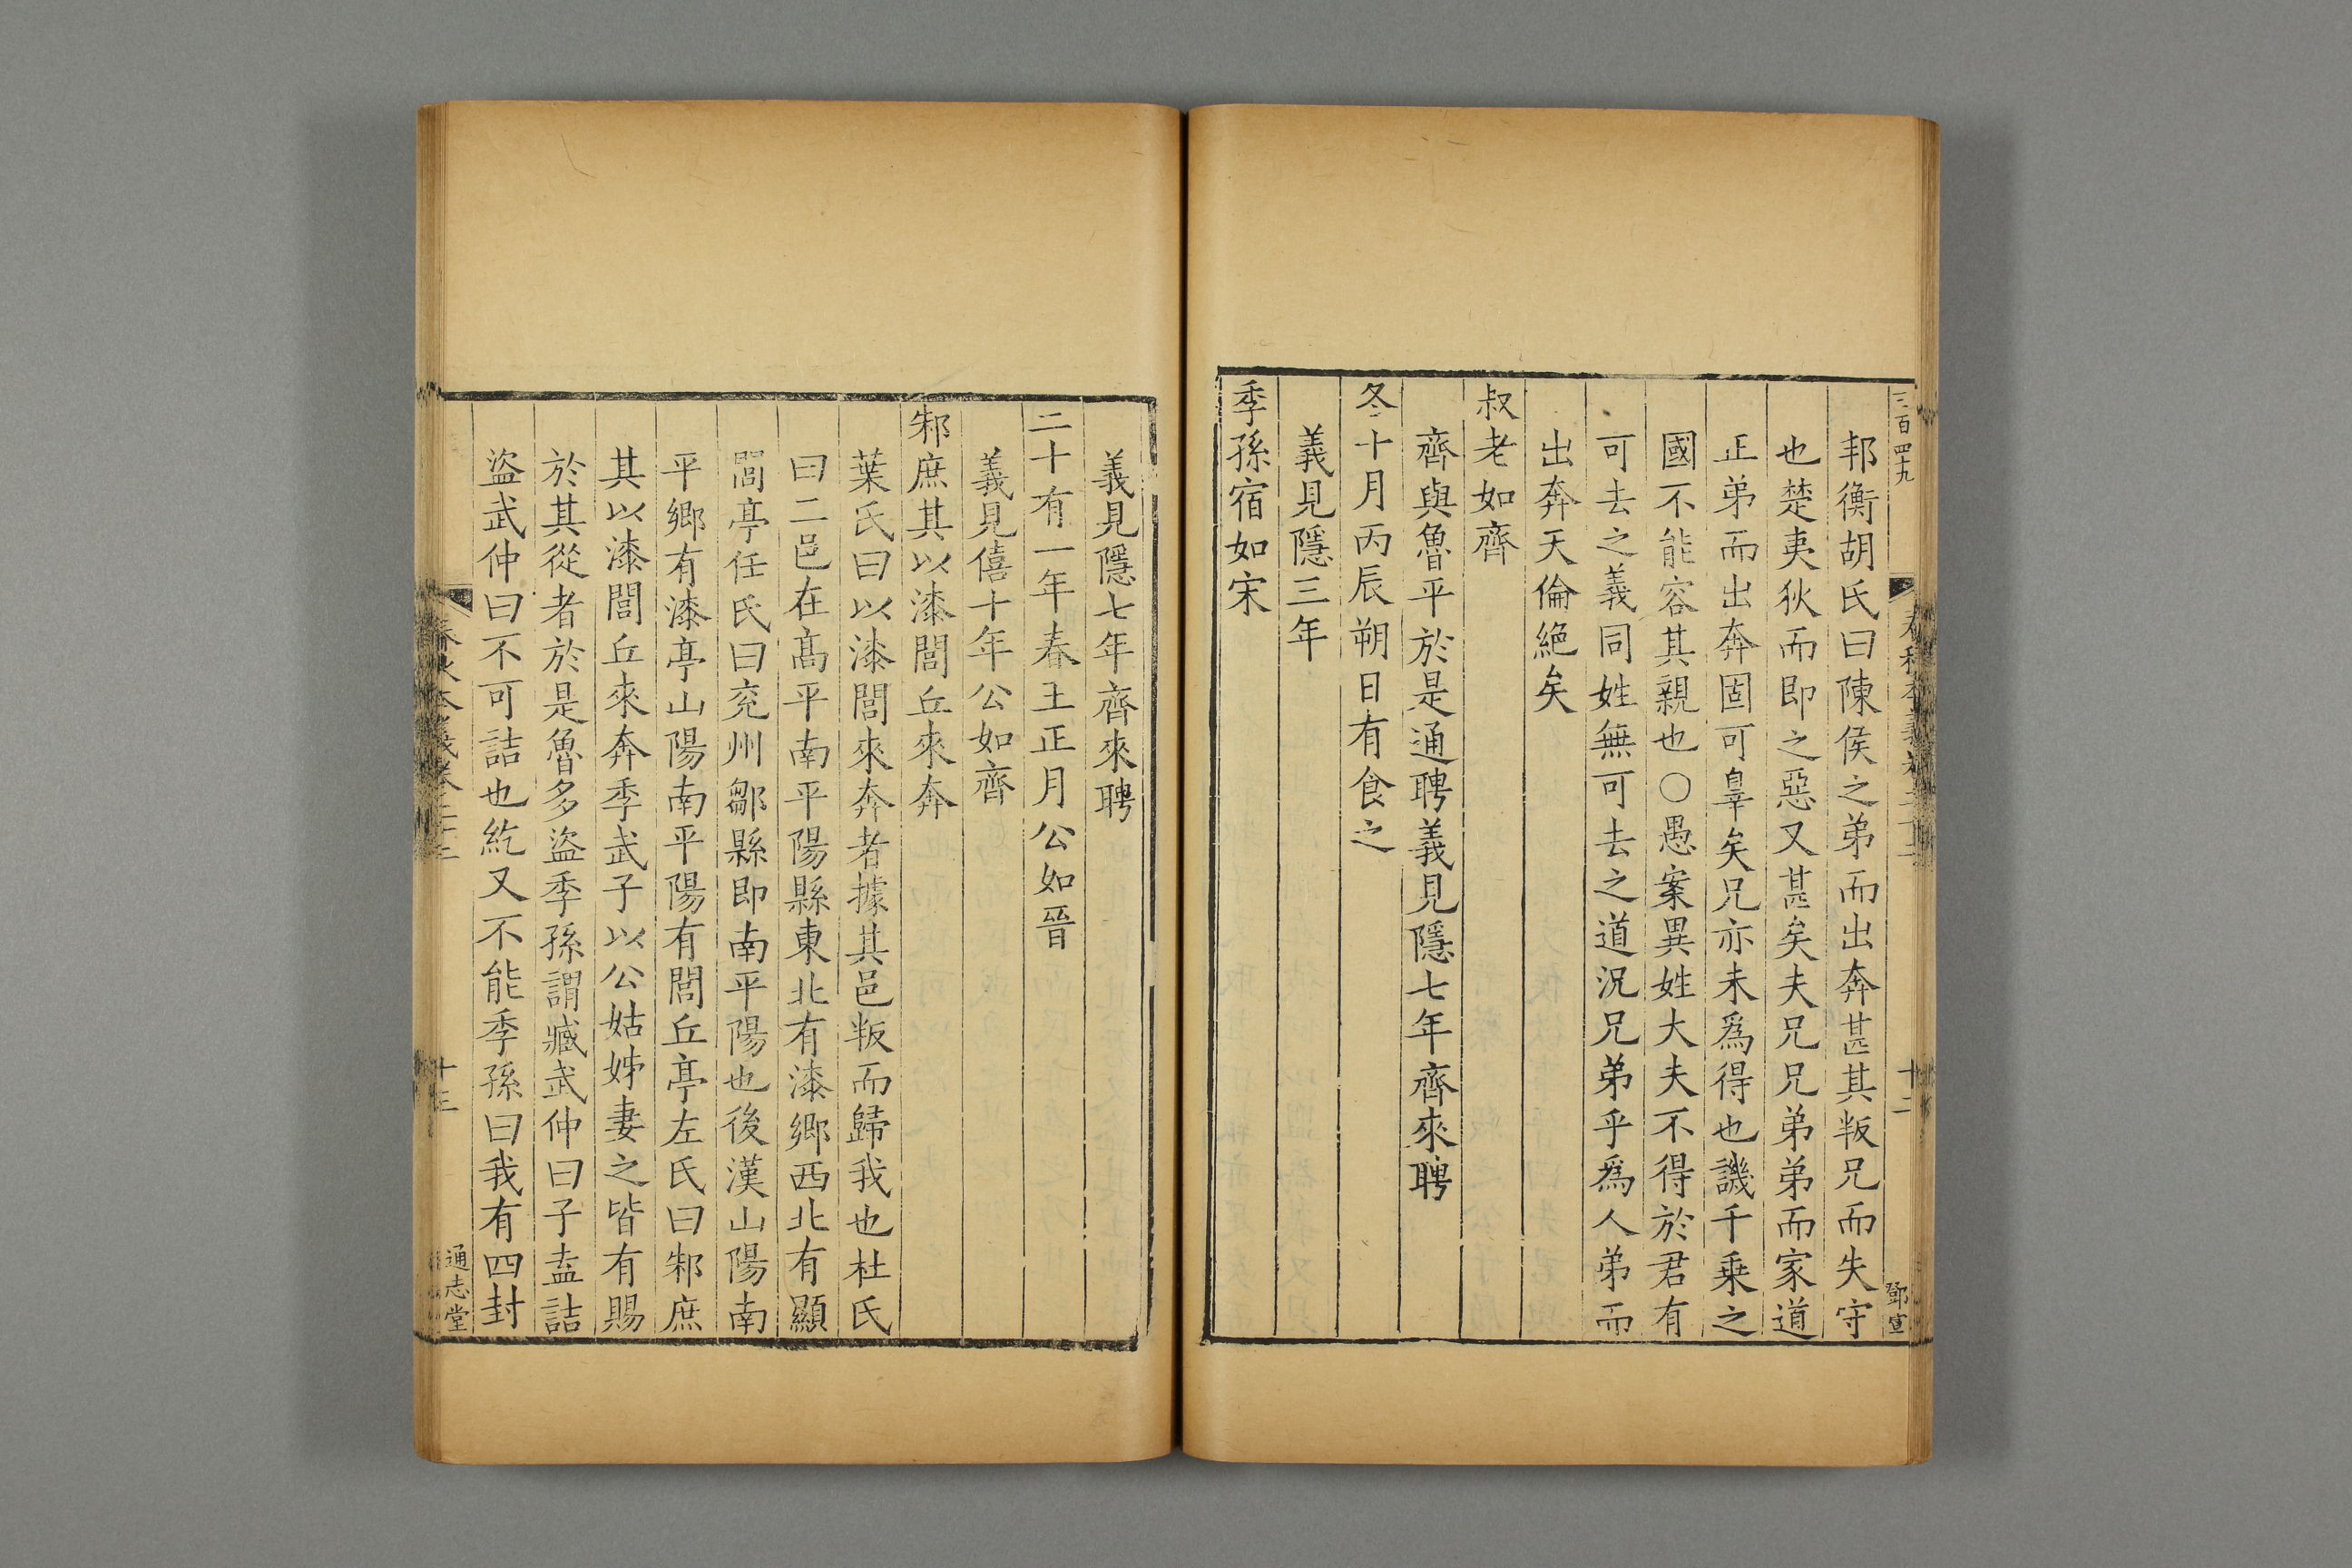 三百四九
春秋本義卷二十二
十二
鄧宣
邦衡胡氏曰陳侯之弟而出奔甚其叛兄而失守
也楚夷狄而即之惡又甚矣夫兄兄弟弟而家道
正弟而出奔固可辠矣兄亦未爲得也譏千乗之
國不能容其親也〇愚案異姓大夫不得於君有
可去之義同姓無可去之道況兄弟乎爲人弟而
出奔天倫絕矣
叔老如齊
齊與魯平於是通聘義見隱七年齊來聘
冬十月丙辰朔日有食之
義見隱三年
季孫宿如宋
義見隱七年齊來聘
二十有一年春王正月公如晉
義見僖十年公如齊
邾庶其以漆閭丘來奔
葉氏曰以漆閭來奔者據其邑叛而歸我也杜氏
曰二邑在髙平南平陽縣東北有漆鄉西北有顯
閭亭任氏曰兖州鄒縣即南平陽也後漢山陽南
平鄉有漆亭山陽南平陽有閭丘亭左氏曰邾庶
其以漆閭丘來奔季武子以公姑姊妻之皆有賜
於其從者於是魯多盜季孫謂臧武仲曰子盍詰
盜武仲曰不可詰也紇又不能季孫曰我有四封
春秋本義卷二十二
十三
通志堂